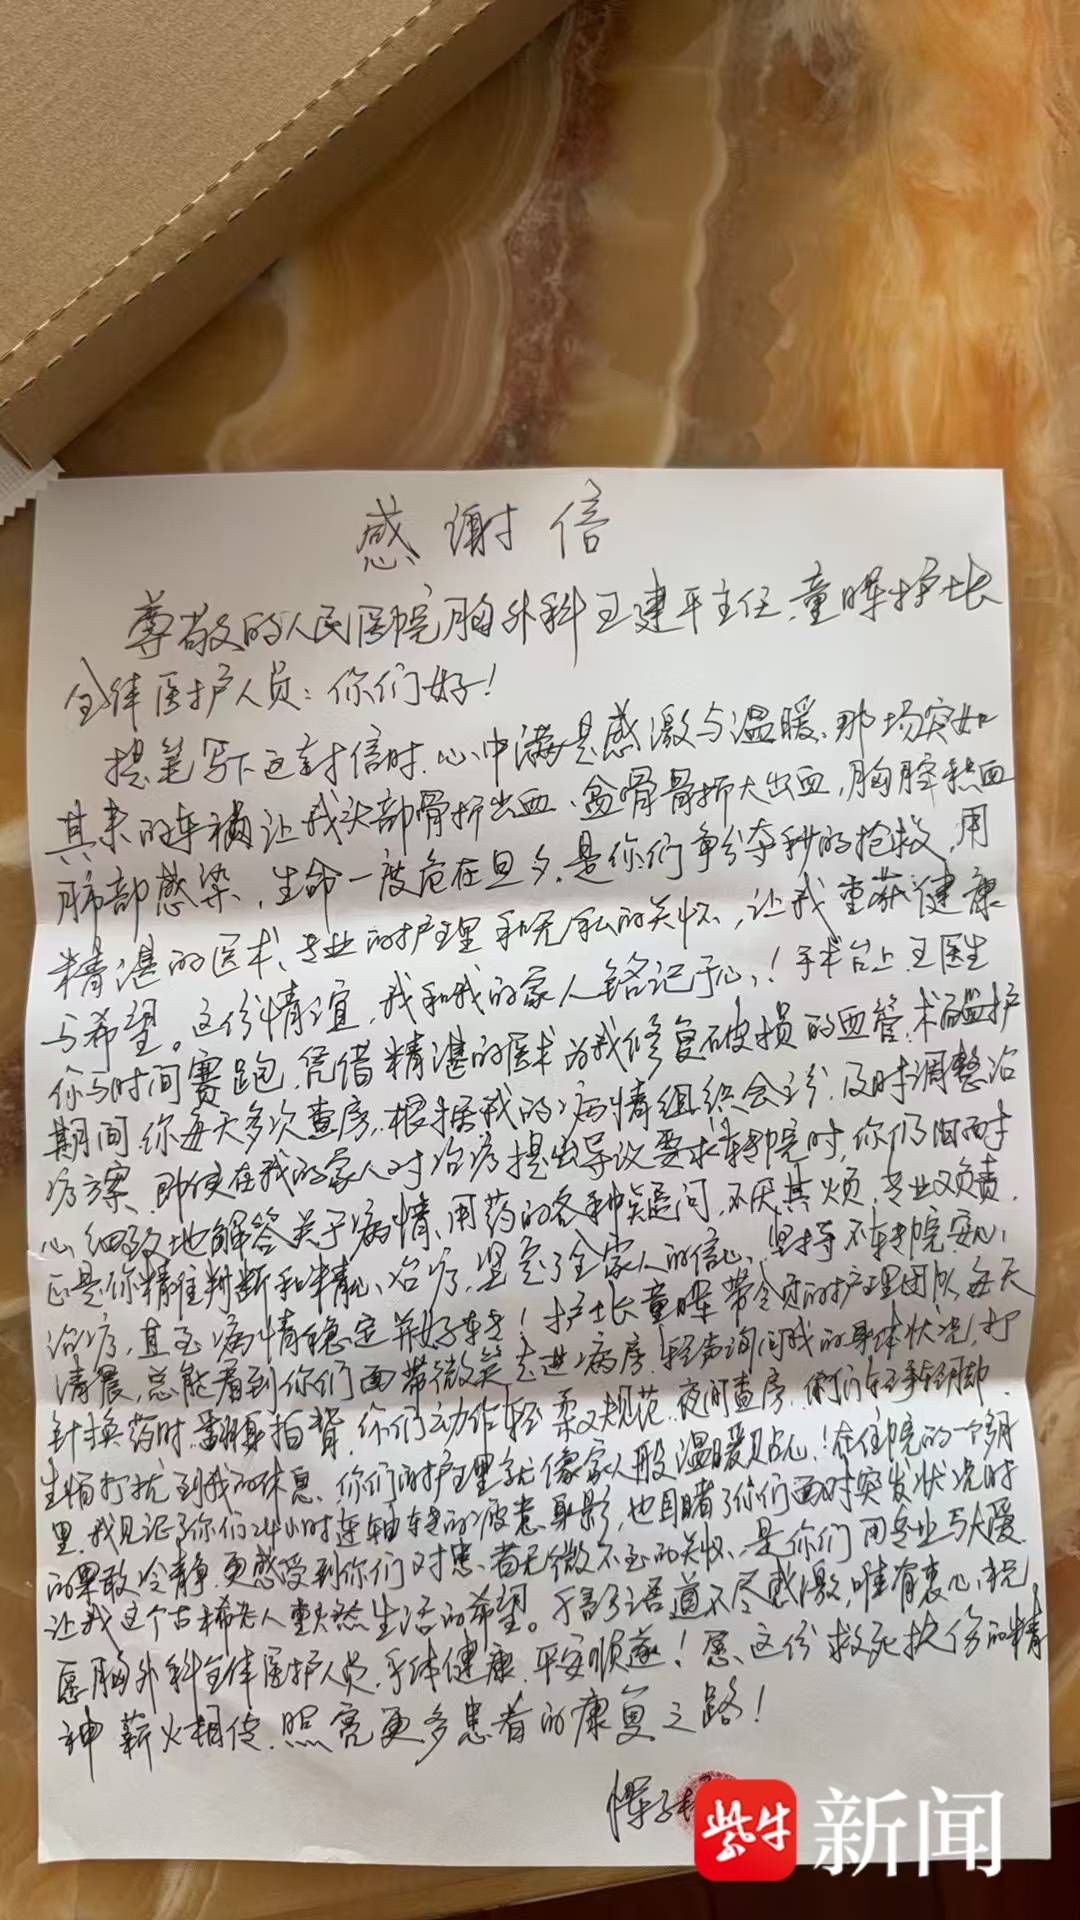 感谢信
尊敬的人民医院胸外科王建平主任、童晖护士长
全体医护人员：你们好！
提笔写下这封信时，心中满是感激与温暖、那场突如
其来的车祸让我头部骨折出血、盆骨骨折大出血，胸腔积血
肺部感染，生命一度危在旦夕，是你们争分夺秒的抢救，用
精湛的医术、专业的护理和无私的关怀，让我重获健康
与希望。这份情谊，我和我的家人铭记于心！手术台上，王医生
你与时间赛跑，凭借精湛的医术为我修复破损的血管，术后监护
期间，你每天多次查房，根据我的病情组织会诊，及时调整治
疗方案、即使在我的家人对治疗提出异议要求转院时，你仍旧耐
心细致地解答关于病情、用药的各种疑问，不厌其烦，专业又负责，
正是你精准判断和精心治疗，坚定了全家人的信心，坚持不转院安心
治疗，直至病情稳定并好转！护士长童晖带领的护理团队每天
清晨，总能看到你们面带微笑走进病房，轻声询问我的身体状况，打
针换药时，翻身拍背，你们动作轻柔又规范，夜间查房，你们轻手轻脚，
生怕打扰到我的休息，你们的护理就像家人般温暖贴心！在住院的一个多月
里，我见证了你们24小时连轴转的疲惫身影，也目睹了你们面对突发状况时
的果敢冷静，更感受到你们对患者无微不至的关怀，是你们用专业与大爱
让我这个古稀老人重燃生活的希望。千言万语道不尽感激，唯有衷心祝
愿胸外科全体医护人员，身体健康，平安顺遂！愿这份救死扶伤的精
神薪火相传，照亮更多患者的康复之路！
紫牛新闻